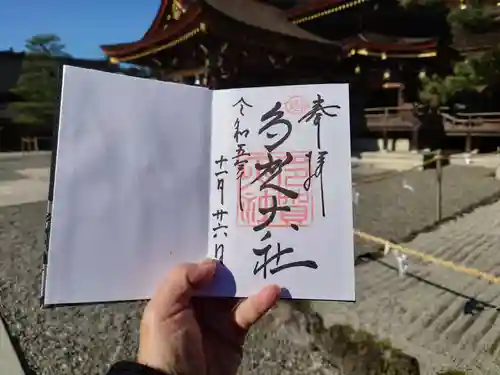 奉拝
多賀大社
令和五年
十一月廿六日